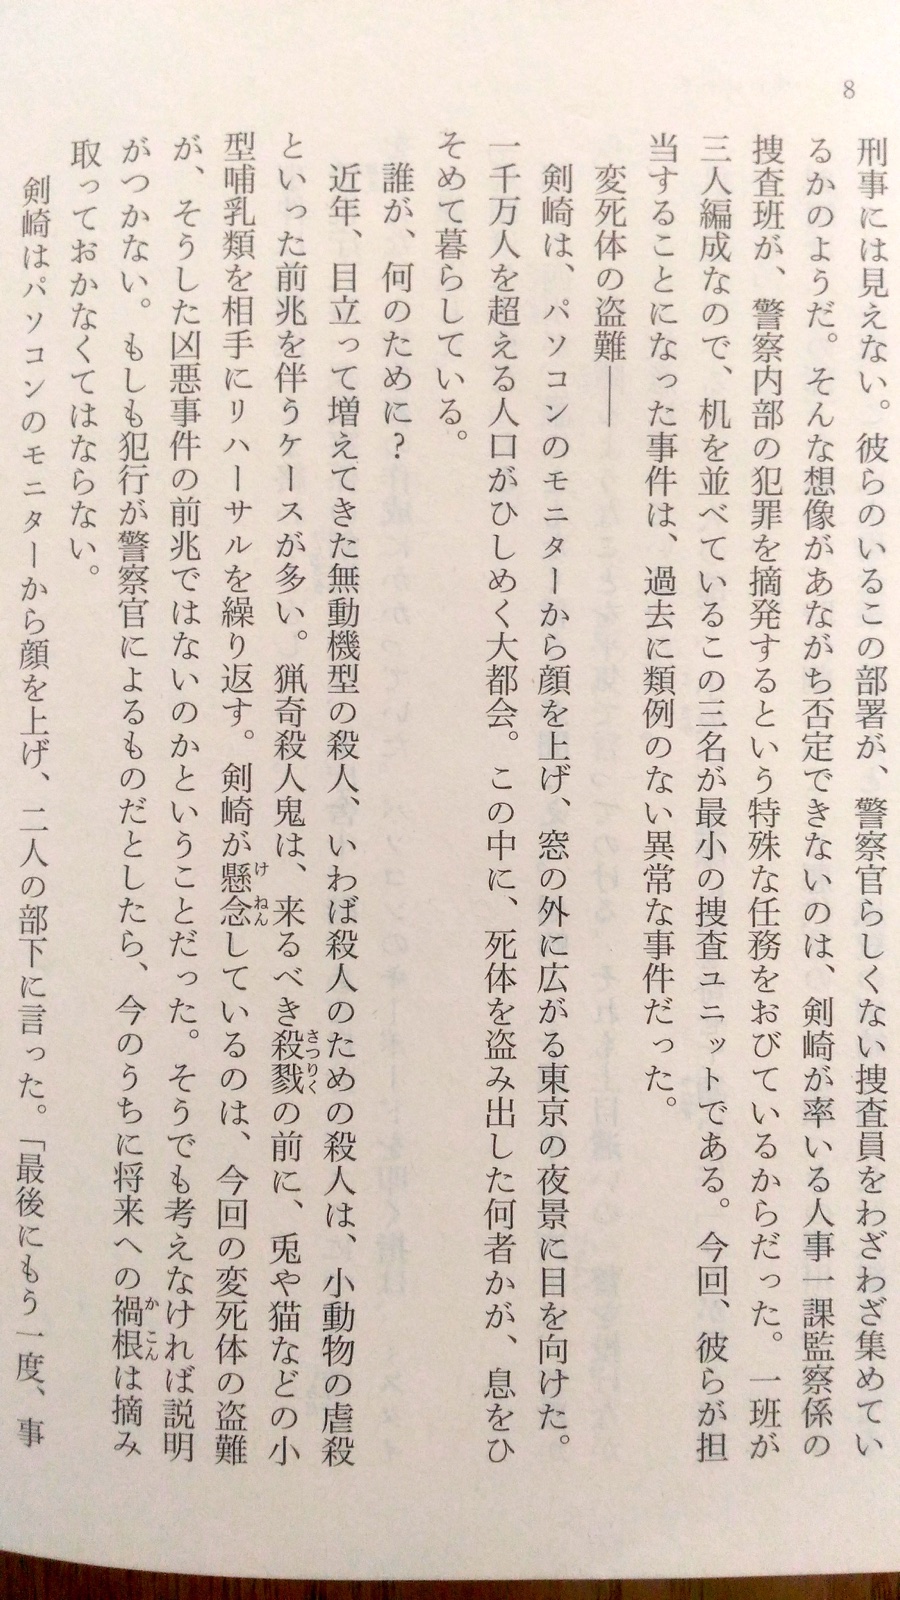 8
刑事には見えない。彼らのいるこの部署が、警察官らしくない捜査員をわざわざ集めてい
るかのようだ。そんな想像があながち否定できないのは、剣崎が率いる人事一課監察係の
捜査班が、警察内部の犯罪を摘発するという特殊な任務をおびているからだった。一班が
三人編成なので、机を並べているこの三名が最小の捜査ユニットである。今回、彼らが担
当することになった事件は、過去に類例のない異常な事件だった。
変死体の盗難――
剣崎は、パソコンのモニターから顔を上げ、窓の外に広がる東京の夜景に目を向けた。
一千万人を超える人口がひしめく大都会。この中に、死体を盗み出した何者かが、息をひ
そめて暮らしている。
誰が、何のために?
近年、目立って増えてきた無動機型の殺人、いわば殺人のための殺人は、小動物の虐殺
といった前兆を伴うケースが多い。猟奇殺人鬼は、来るべき殺戮さつりくの前に、兎や猫などの小
型哺乳類を相手にリハーサルを繰り返す。剣崎が懸念けねんしているのは、今回の変死体の盗難
が、そうした凶悪事件の前兆ではないのかということだった。そうでも考えなければ説明
がつかない。もしも犯行が警察官によるものだとしたら、今のうちに将来への禍根かこんは摘み
取っておかなくてはならない。
剣崎はパソコンのモニターから顔を上げ、二人の部下に言った。「最後にもう一度、事